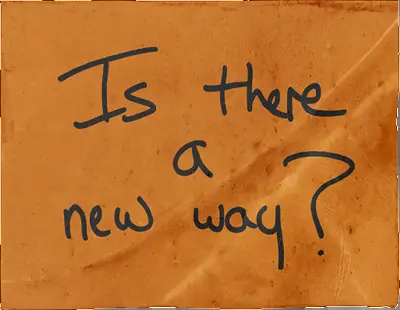 Is there
a
new way?